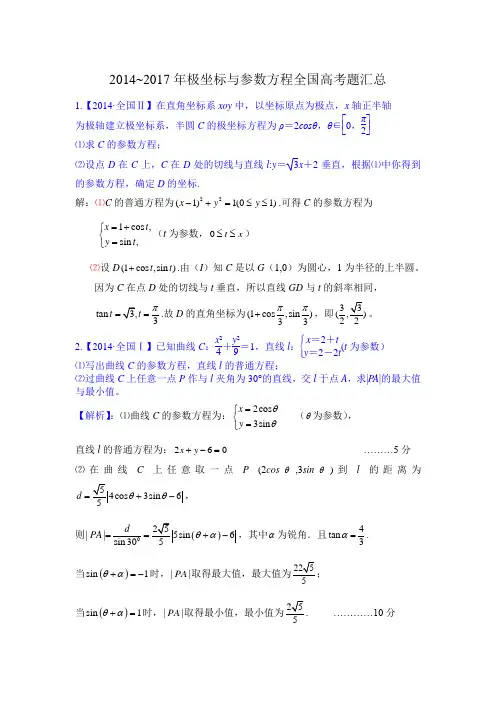 2014~2017年极坐标与参数方程全国高考题汇总
1.【2014·全国Ⅱ】在直角坐标系 xoy 中，以坐标原点为极点，x 轴正半轴
为极轴建立极坐标系，半圆 C 的极坐标方程为 ρ＝2cosθ，θ∈[0，π/2]
⑴求 C 的参数方程；
⑵设点 D 在 C 上，C 在 D 处的切线与直线 l:y＝√3x＋2 垂直，根据⑴中你得到
的参数方程，确定 D 的坐标.
解：⑴C 的普通方程为(x−1)²+y²=1(0≤y≤1).可得 C 的参数方程为
{x=1+cost, y=sint,（t 为参数，0≤t≤x）
⑵设 D(1+cost,sint).由（I）知 C 是以 G（1,0）为圆心，1 为半径的上半圆。
因为 C 在点 D 处的切线与 t 垂直，所以直线 GD 与 t 的斜率相同，
tant=√3,t=π/3.故 D 的直角坐标为(1+cosπ/3,sinπ/3)，即(3/2,√3/2)。
2.【2014·全国Ⅰ】已知曲线 C：x²/4＋y²/9＝1，直线 l：{x＝2＋t y＝2－2t(t 为参数)
⑴写出曲线 C 的参数方程，直线 l 的普通方程；
⑵过曲线 C 上任意一点 P 作与 l 夹角为 30°的直线，交 l 于点 A，求|PA|的最大值
与最小值。
【解析】：⑴曲线 C 的参数方程为：{x=2cosθ y=3sinθ （θ为参数），
直线 l 的普通方程为：2x+y−6=0 ………5 分
⑵在曲线 C 上任意取一点 P (2cosθ,3sinθ)到 l 的距离为
d=√5/5|4cosθ+3sinθ−6|，
则|PA|=d/sin30⁰=2√5/5|5sin(θ+α)−6|，其中α为锐角．且tanα=4/3.
当sin(θ+α)=−1时，|PA|取得最大值，最大值为22√5/5；
当sin(θ+α)=1时，|PA|取得最小值，最小值为2√5/5. …………10 分